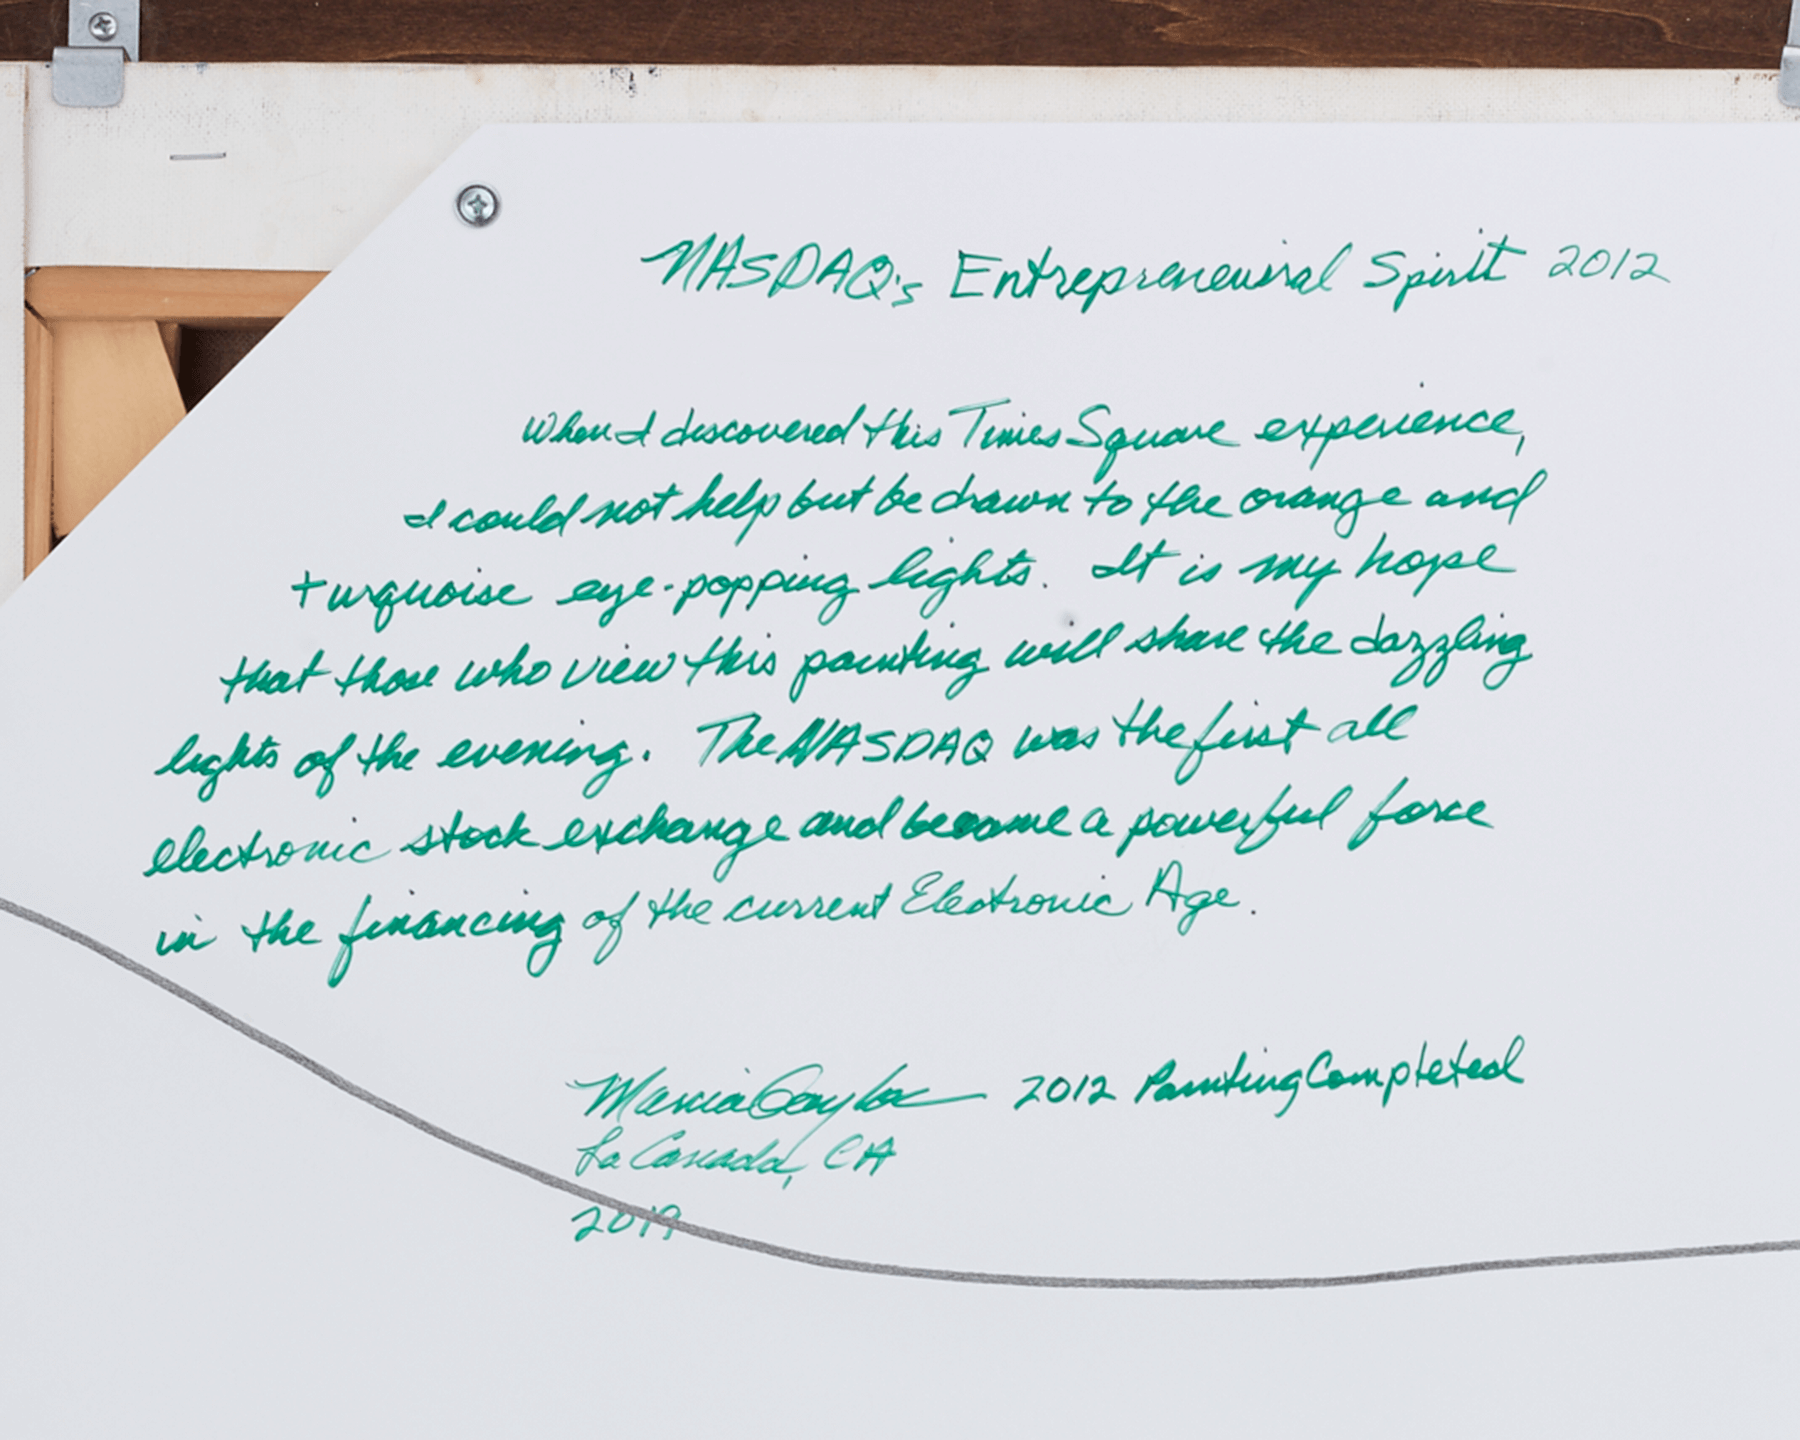 NASDAQ's Entrepreneurial Spirit 2012
When I discovered this Times Square experience,
I could not help but be drawn to the orange and
turquoise eye-popping lights. It is my hope
that those who view this painting will share the dazzling
lights of the evening. The NASDAQ was the first all
electronic stock exchange and became a powerful force
in the financing of the current Electronic Age.
Marcia Gaylor 2012 Painting Completed
La Canada, CA
2019